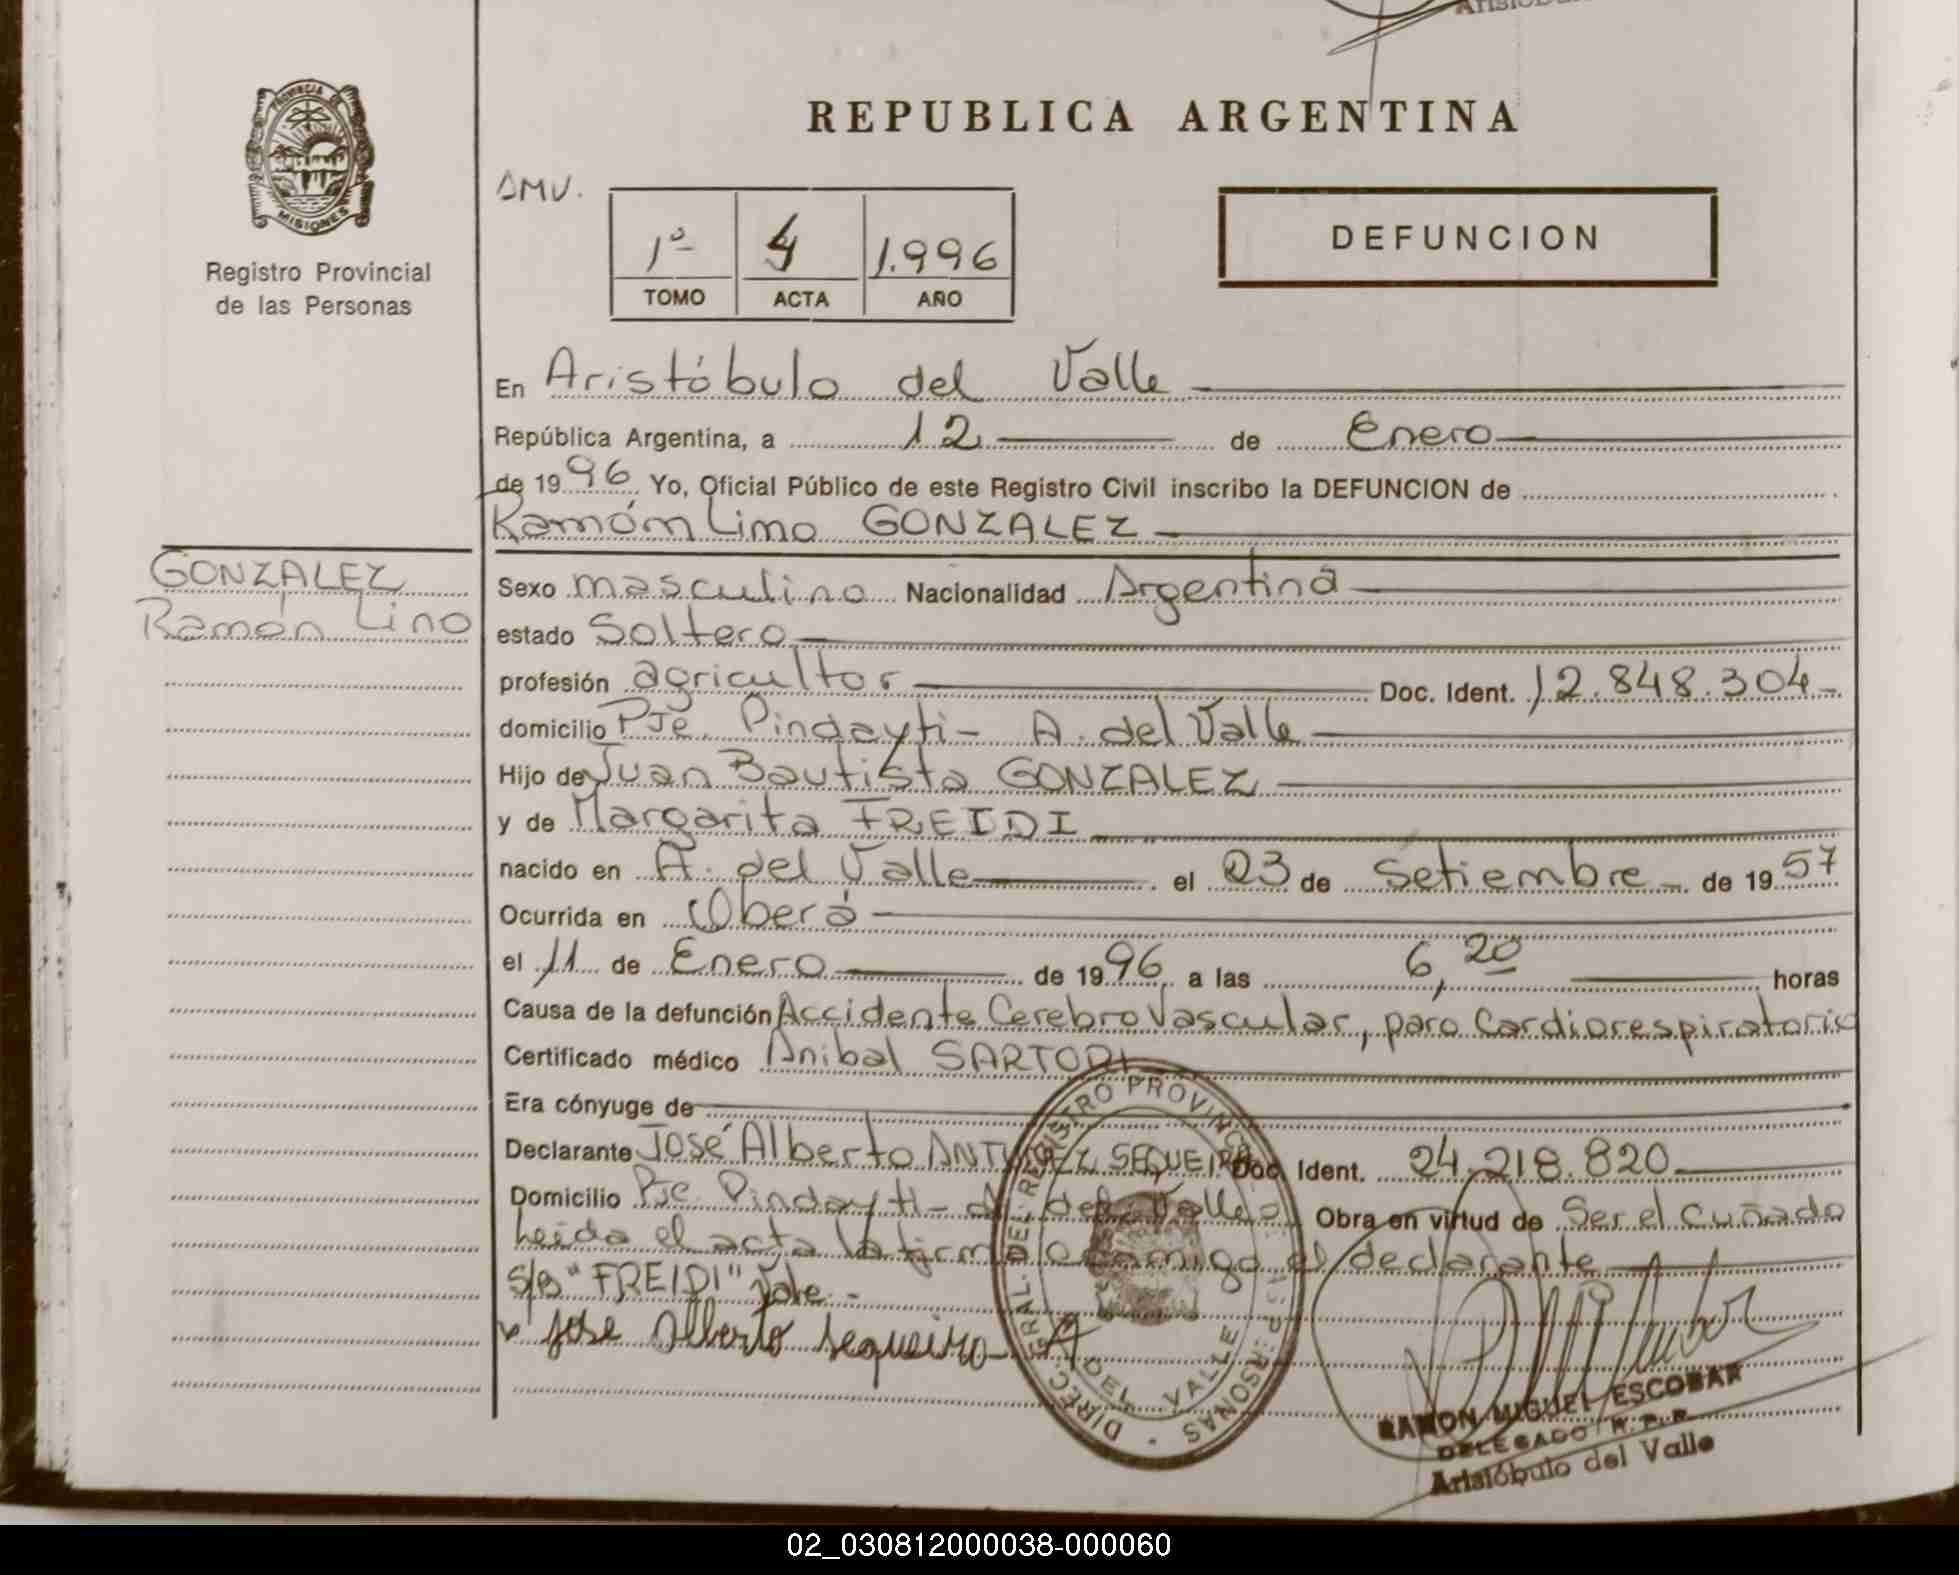 REPUBLICA ARGENTINA
PROVINCIA DE
MISIONES
Registro Provincial
de las Personas
DMV.
1º 4 1.996
TOMO ACTA AÑO
DEFUNCION
En Aristóbulo del Valle
República Argentina, a 12 de Enero
de 1996 Yo, Oficial Público de este Registro Civil inscribo la DEFUNCION de
Ramón Lino GONZALEZ
GONZALEZ
Ramón Lino
Sexo masculino Nacionalidad Argentina
estado Soltero
profesión agricultor Doc. Ident. 12.848.304-
domicilio Pje. Pindayti- A. del Valle
Hijo de Juan Bautista GONZALEZ
y de Margarita FREIDI
nacido en A. del Valle el 23 de Setiembre de 1957
Ocurrida en Oberá
el 11 de Enero de 1996, a las 6,20 horas
Causa de la defunción Accidente Cerebro Vascular, paro Cardiorespiratorio
Certificado médico Anibal SARTORI
Era cónyuge de
Declarante José Alberto SEQUEIRA Doc. Ident. 24.218.820
Domicilio Pje. Pindayti- A. del Valle Obra en virtud de Ser el cuñado
Leida el acta la firma conmigo el declarante
S/B "FREIDI" Vale.-
Jose Alberto Sequeiro
DIREC. GRAL. DEL REGISTRO PROVINCIAL DE LAS PERSONAS
DEL VALLE
RAMON MIGUEL ESCOBAR
DELEGADO R. P. P.
Aristóbulo del Valle
02_030812000038-000060